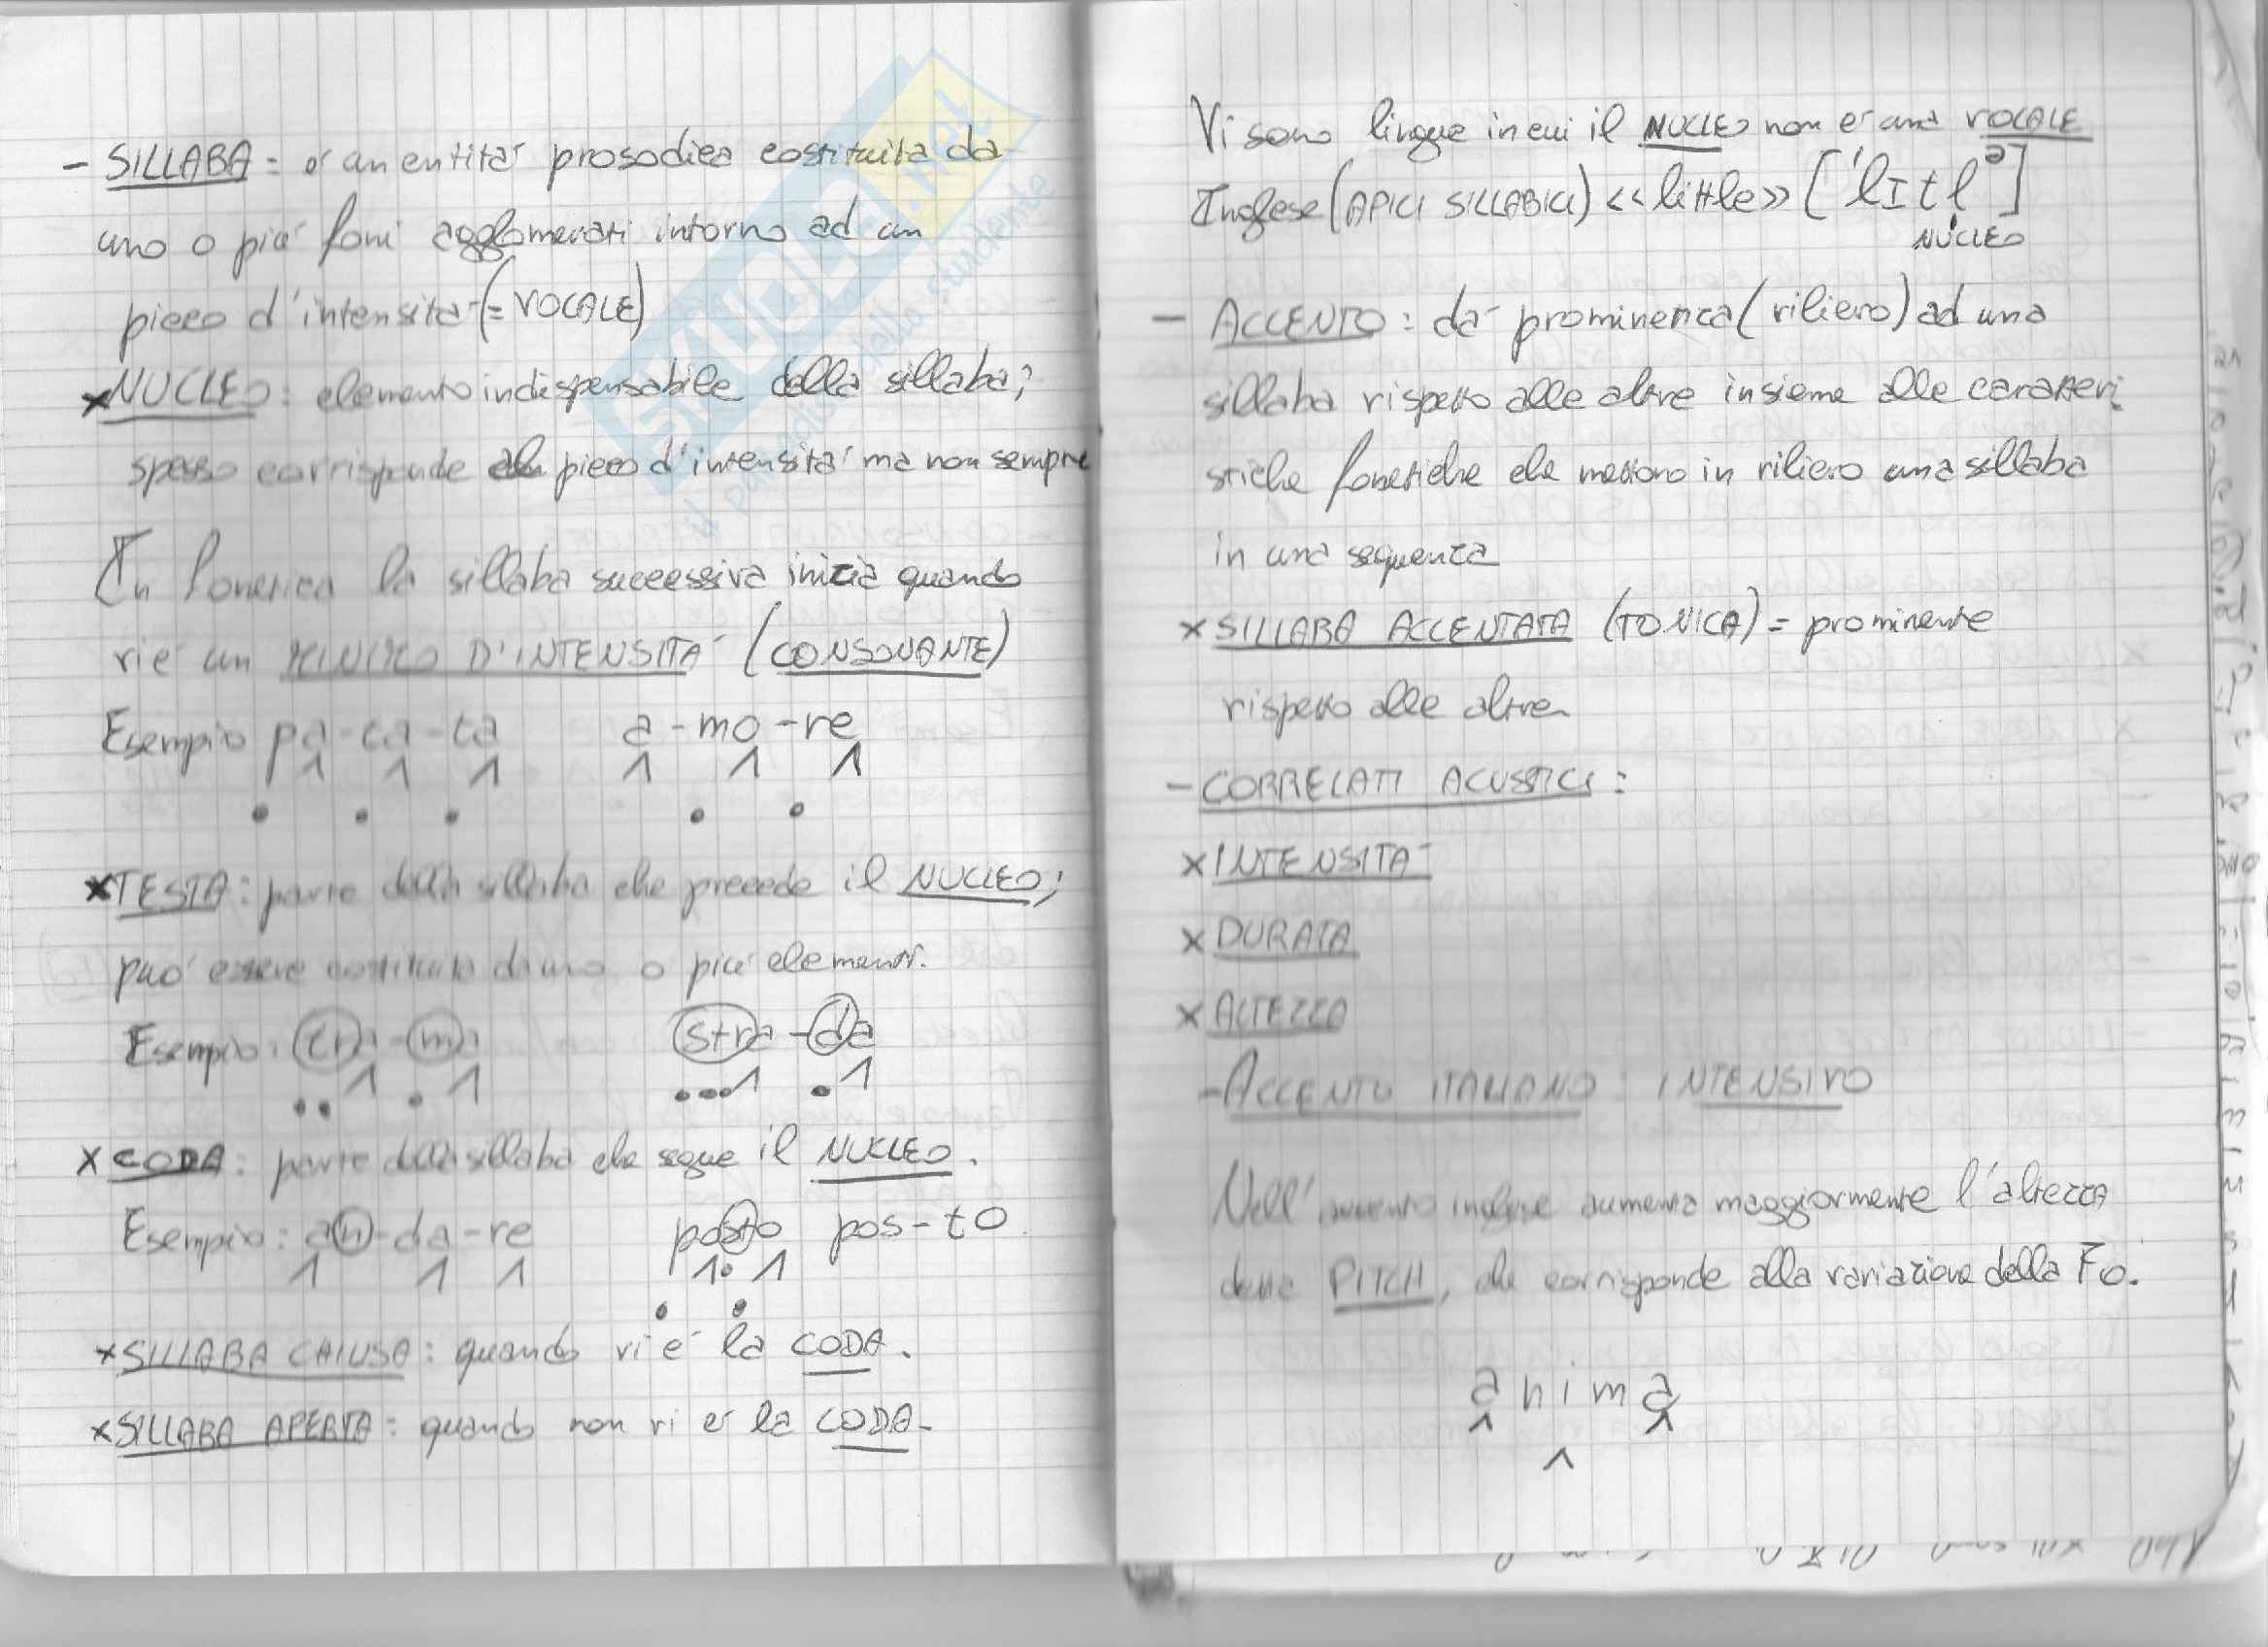 - SILLABA = è un entità prosodica costituita da
uno o più foni agglomerati intorno ad un
picco d'intensità (= VOCALE)
x NUCLEO: elemento indispensabile della sillaba;
spesso corrisponde al picco d'intensità ma non sempre
In fonetica la sillaba successiva inizia quando
vi è un MINIMO D'INTENSITÀ (CONSONANTE)
Esempio pa-ta-ta a-mo-re
x TESTA: parte della sillaba che precede il NUCLEO;
può essere costituita da uno o più elementi.
Esempio: tra-ma stra-da
x CODA: parte della sillaba che segue il NUCLEO.
Esempio: an-da-re posto pos-to
x SILLABA CHIUSA: quando vi è la CODA.
x SILLABA APERTA: quando non vi è la CODA.
Vi sono lingue in cui il NUCLEO non è una VOCALE
Inglese (APICI SILLABICI) <<little>> ['lItlᵊ]
NUCLEO
- ACCENTO: dà prominenza (rilievo) ad una
sillaba rispetto alle altre insieme alle caratteri
stiche fonetiche che mettono in rilievo una sillaba
in una sequenza
x SILLABA ACCENTATA (TONICA) = prominente
rispetto alle altre
- CORRELATI ACUSTICI:
x INTENSITÀ
x DURATA
x ALTEZZA
- ACCENTO ITALIANO: INTENSIVO
Nell'accento inglese aumenta maggiormente l'altezza
detta PITCH, che corrisponde alla variazione della F0.
anima
SKUOLA.net
il paradiso dello studente